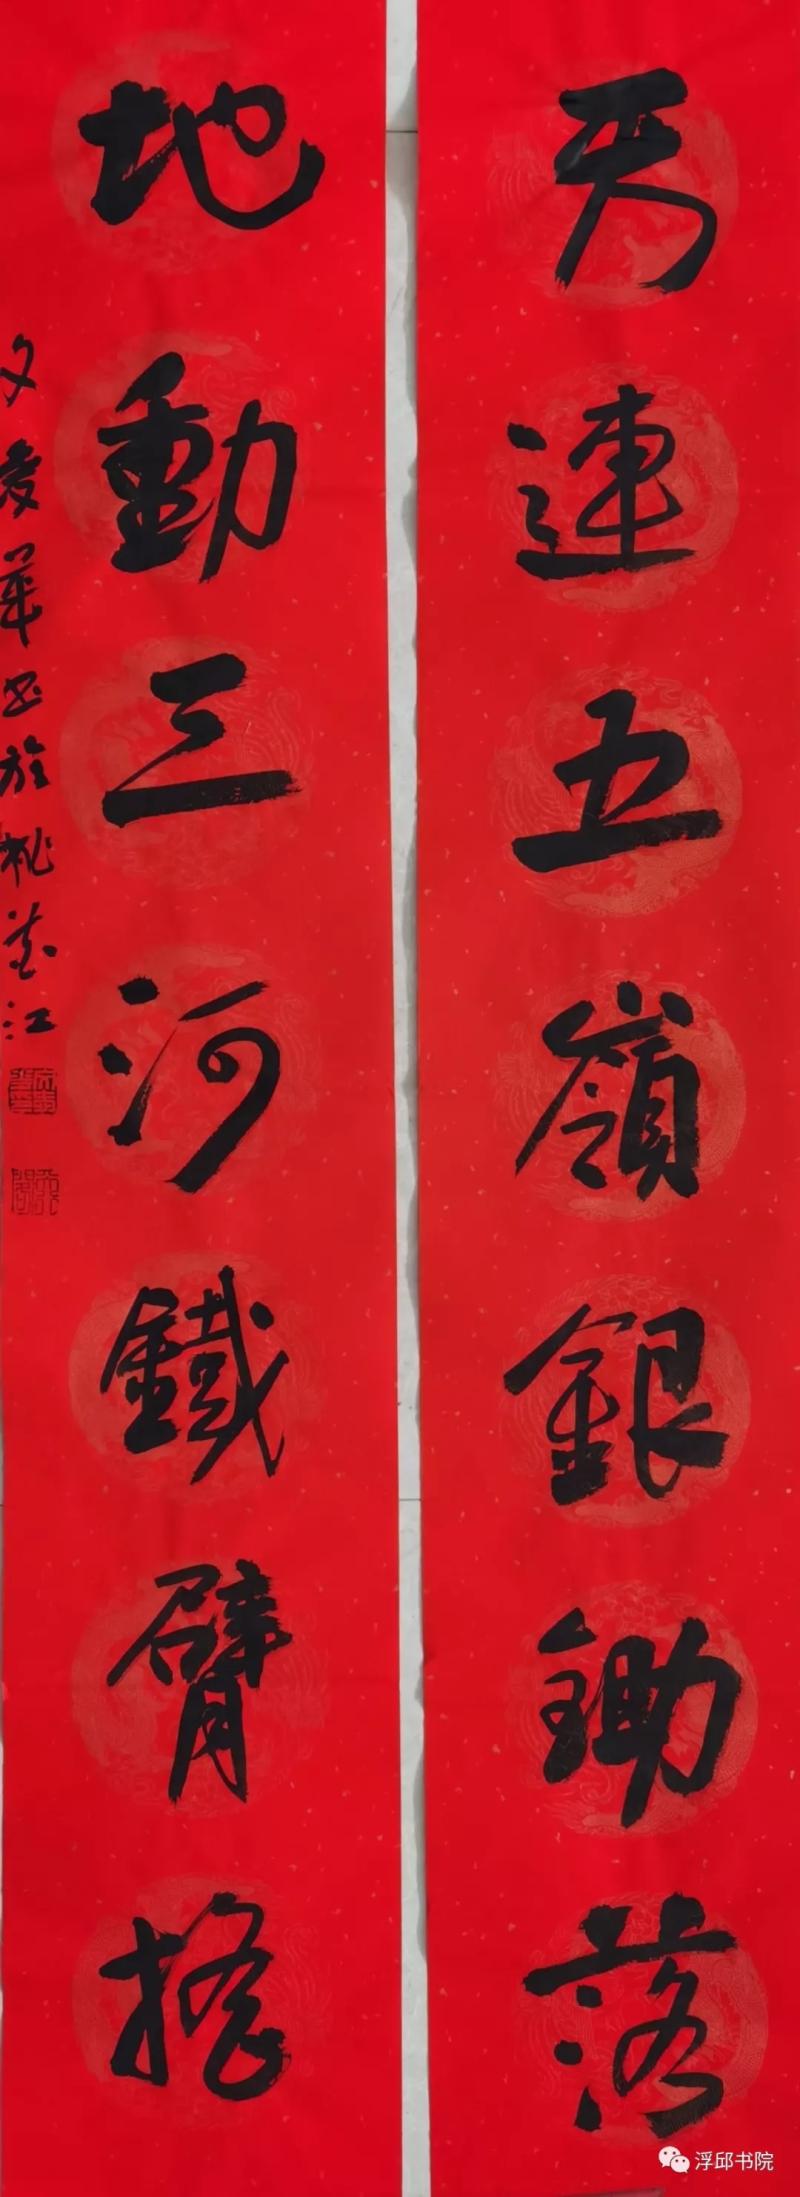 天連五嶺銀鋤落
地動三河鐵臂搖
文愛華書於桃花江
浮邱书院